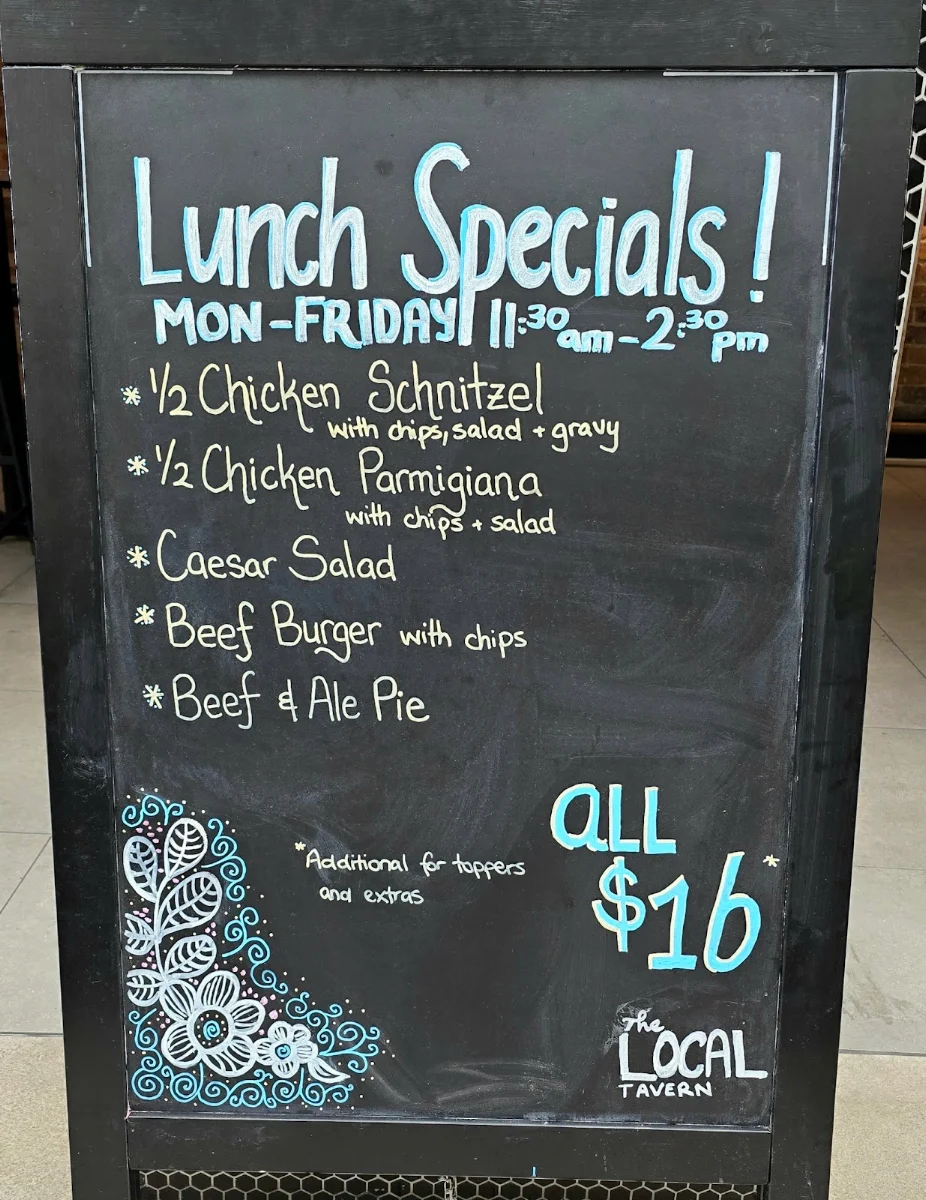 Lunch Specials!
MON-FRIDAY 11:30am-2:30pm
* 1/2 Chicken Schnitzel
with chips, salad + gravy
* 1/2 Chicken Parmigiana
with chips + salad
* Caesar Salad
* Beef Burger with chips
* Beef & Ale Pie
all
$16*
*Additional for toppers
and extras
The
LOCAL
TAVERN